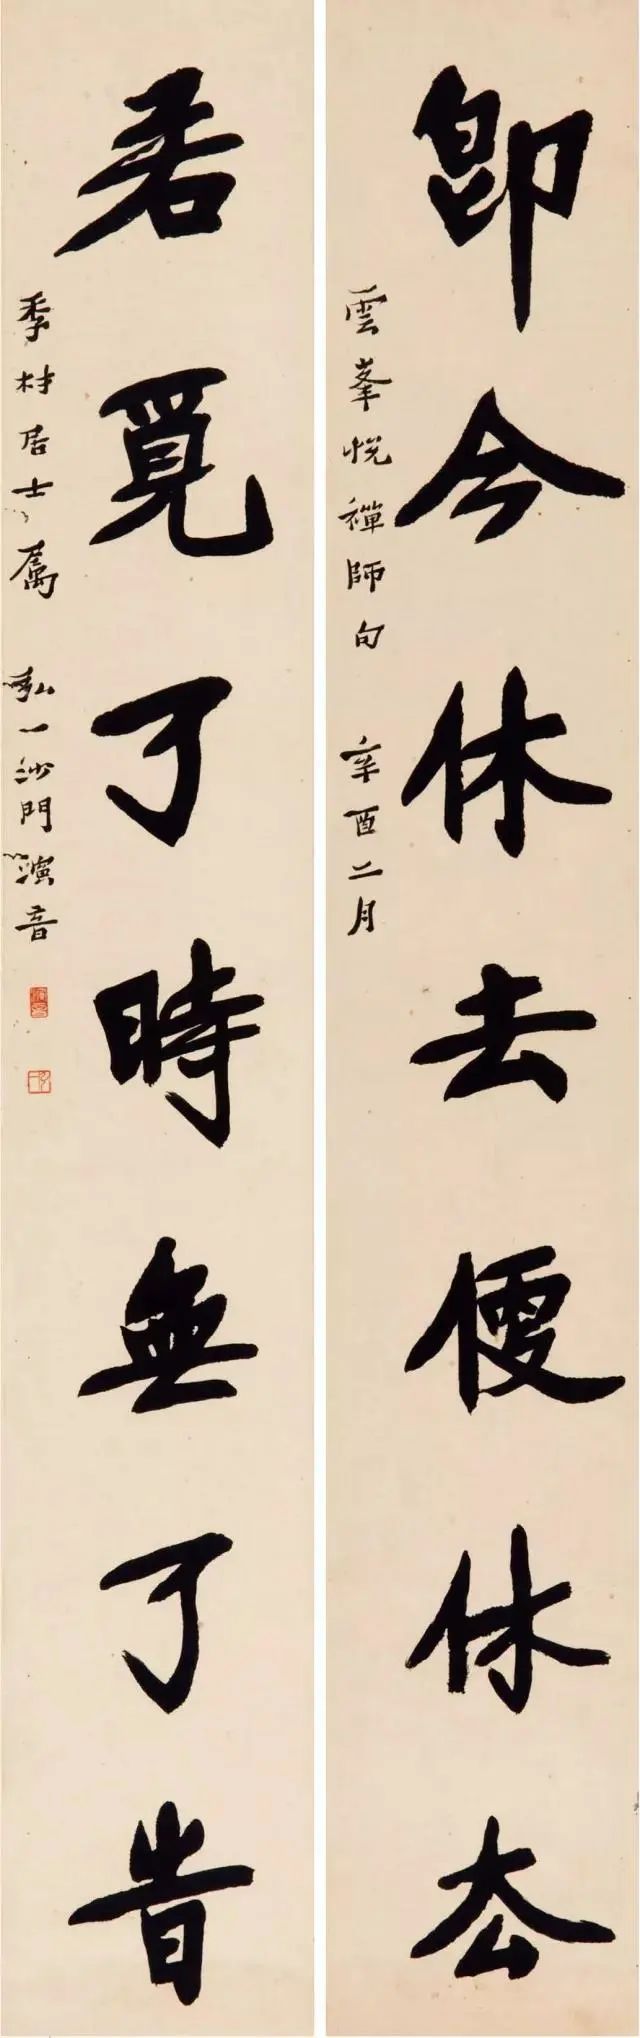 即今休去便休厺
雲峯悅禪師句 辛酉二月
若覓了時無了旹
季村居士屬 弘一沙門演音
弘一